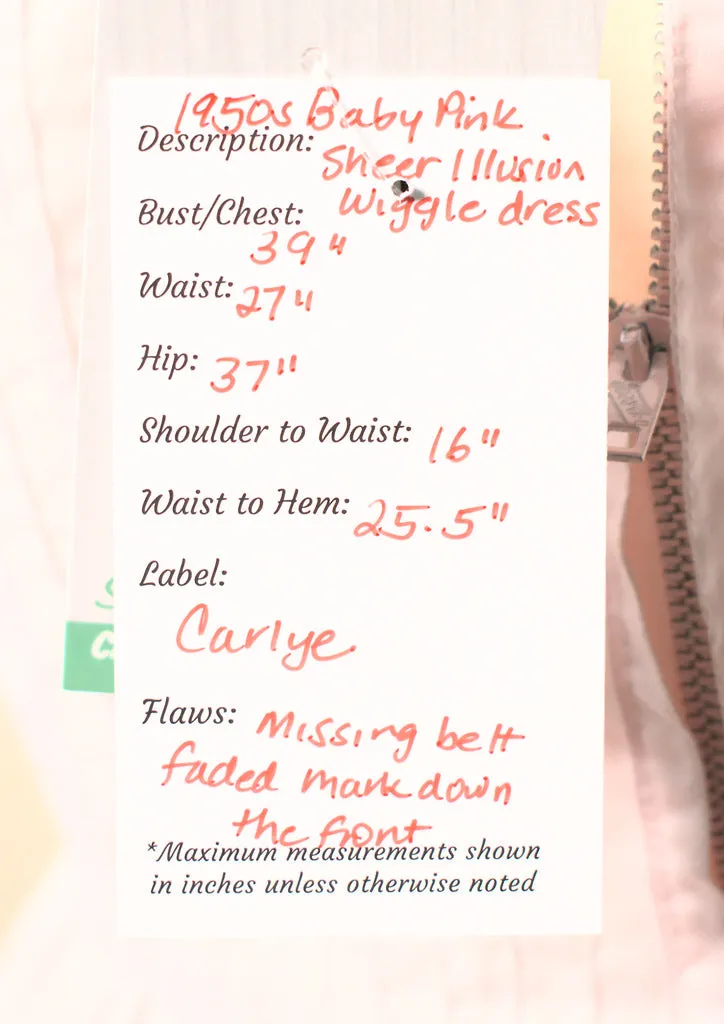 1950s Baby Pink
Description: Sheer Illusion
Wiggle dress
Bust/Chest: 39"
Waist: 27"
Hip: 37"
Shoulder to Waist: 16"
Waist to Hem: 25.5"
Label:
Carlye
Flaws: Missing belt
faded mark down
the front
*Maximum measurements shown
in inches unless otherwise noted